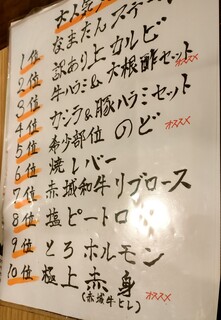 大人気
1位 なまたんステーキ
2位 訳あり上カルビ
3位 牛ハラミ&大根酢セット
オススメ
4位 カシラ&豚ハラミセット
オススメ
5位 希少部位 のど
6位 焼レバー
7位 赤城和牛リブロース
オススメ
8位 塩ピートロ
9位 とろホルモン
10位 極上赤身
(赤城牛ヒレ) オススメ